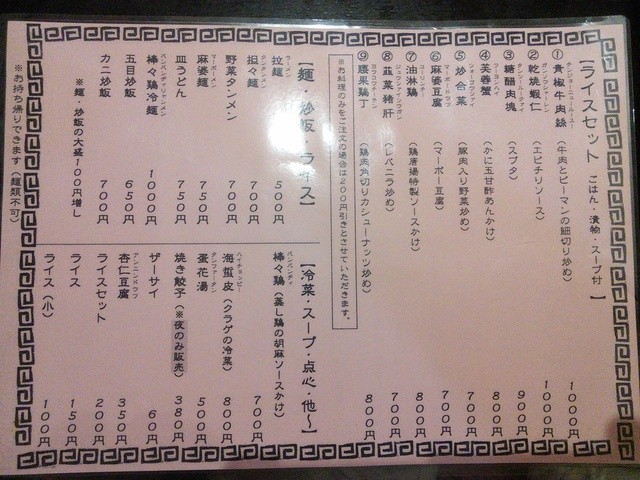 【ライスセット ごはん・漬物・スープ付 】
① 青椒牛肉絲 (牛肉とピーマンの細切り炒め) 1000円
② 乾焼蝦仁 (エビチリソース) 1000円
③ 糖醋肉塊 (スブタ) 900円
④ 芙蓉蟹 (かに玉甘酢あんかけ) 800円
⑤ 炒合菜 (豚肉入り野菜炒め) 700円
⑥ 麻婆豆腐 (マーボー豆腐) 700円
⑦ 油淋鶏 (鶏唐揚特製ソースかけ) 800円
⑧ 韮菜猪肝 (レバニラ炒め) 700円
⑨ 腰果鶏丁 (鶏肉角切りカシューナッツ炒め) 800円
※お料理のみをご注文の場合は200円引きとさせていただきます。
【麺・炒飯・ライス】
拉麺 500円
担々麺 700円
野菜タンメン 700円
麻婆麺 750円
皿うどん 750円
棒々鶏冷麺 1000円
五目炒飯 650円
カニ炒飯 700円
※麺・炒飯の大盛100円増し
【冷菜・スープ・点心・他～】
棒々鶏(蒸し鶏の胡麻ソースかけ) 700円
海蜇皮(クラゲの冷菜) 800円
蛋花湯 500円
焼き餃子(※夜のみ販売) 380円
ザーサイ 60円
杏仁豆腐 350円
ライスセット 200円
ライス 150円
ライス(小) 100円
※お持ち帰りできます(麺類不可)